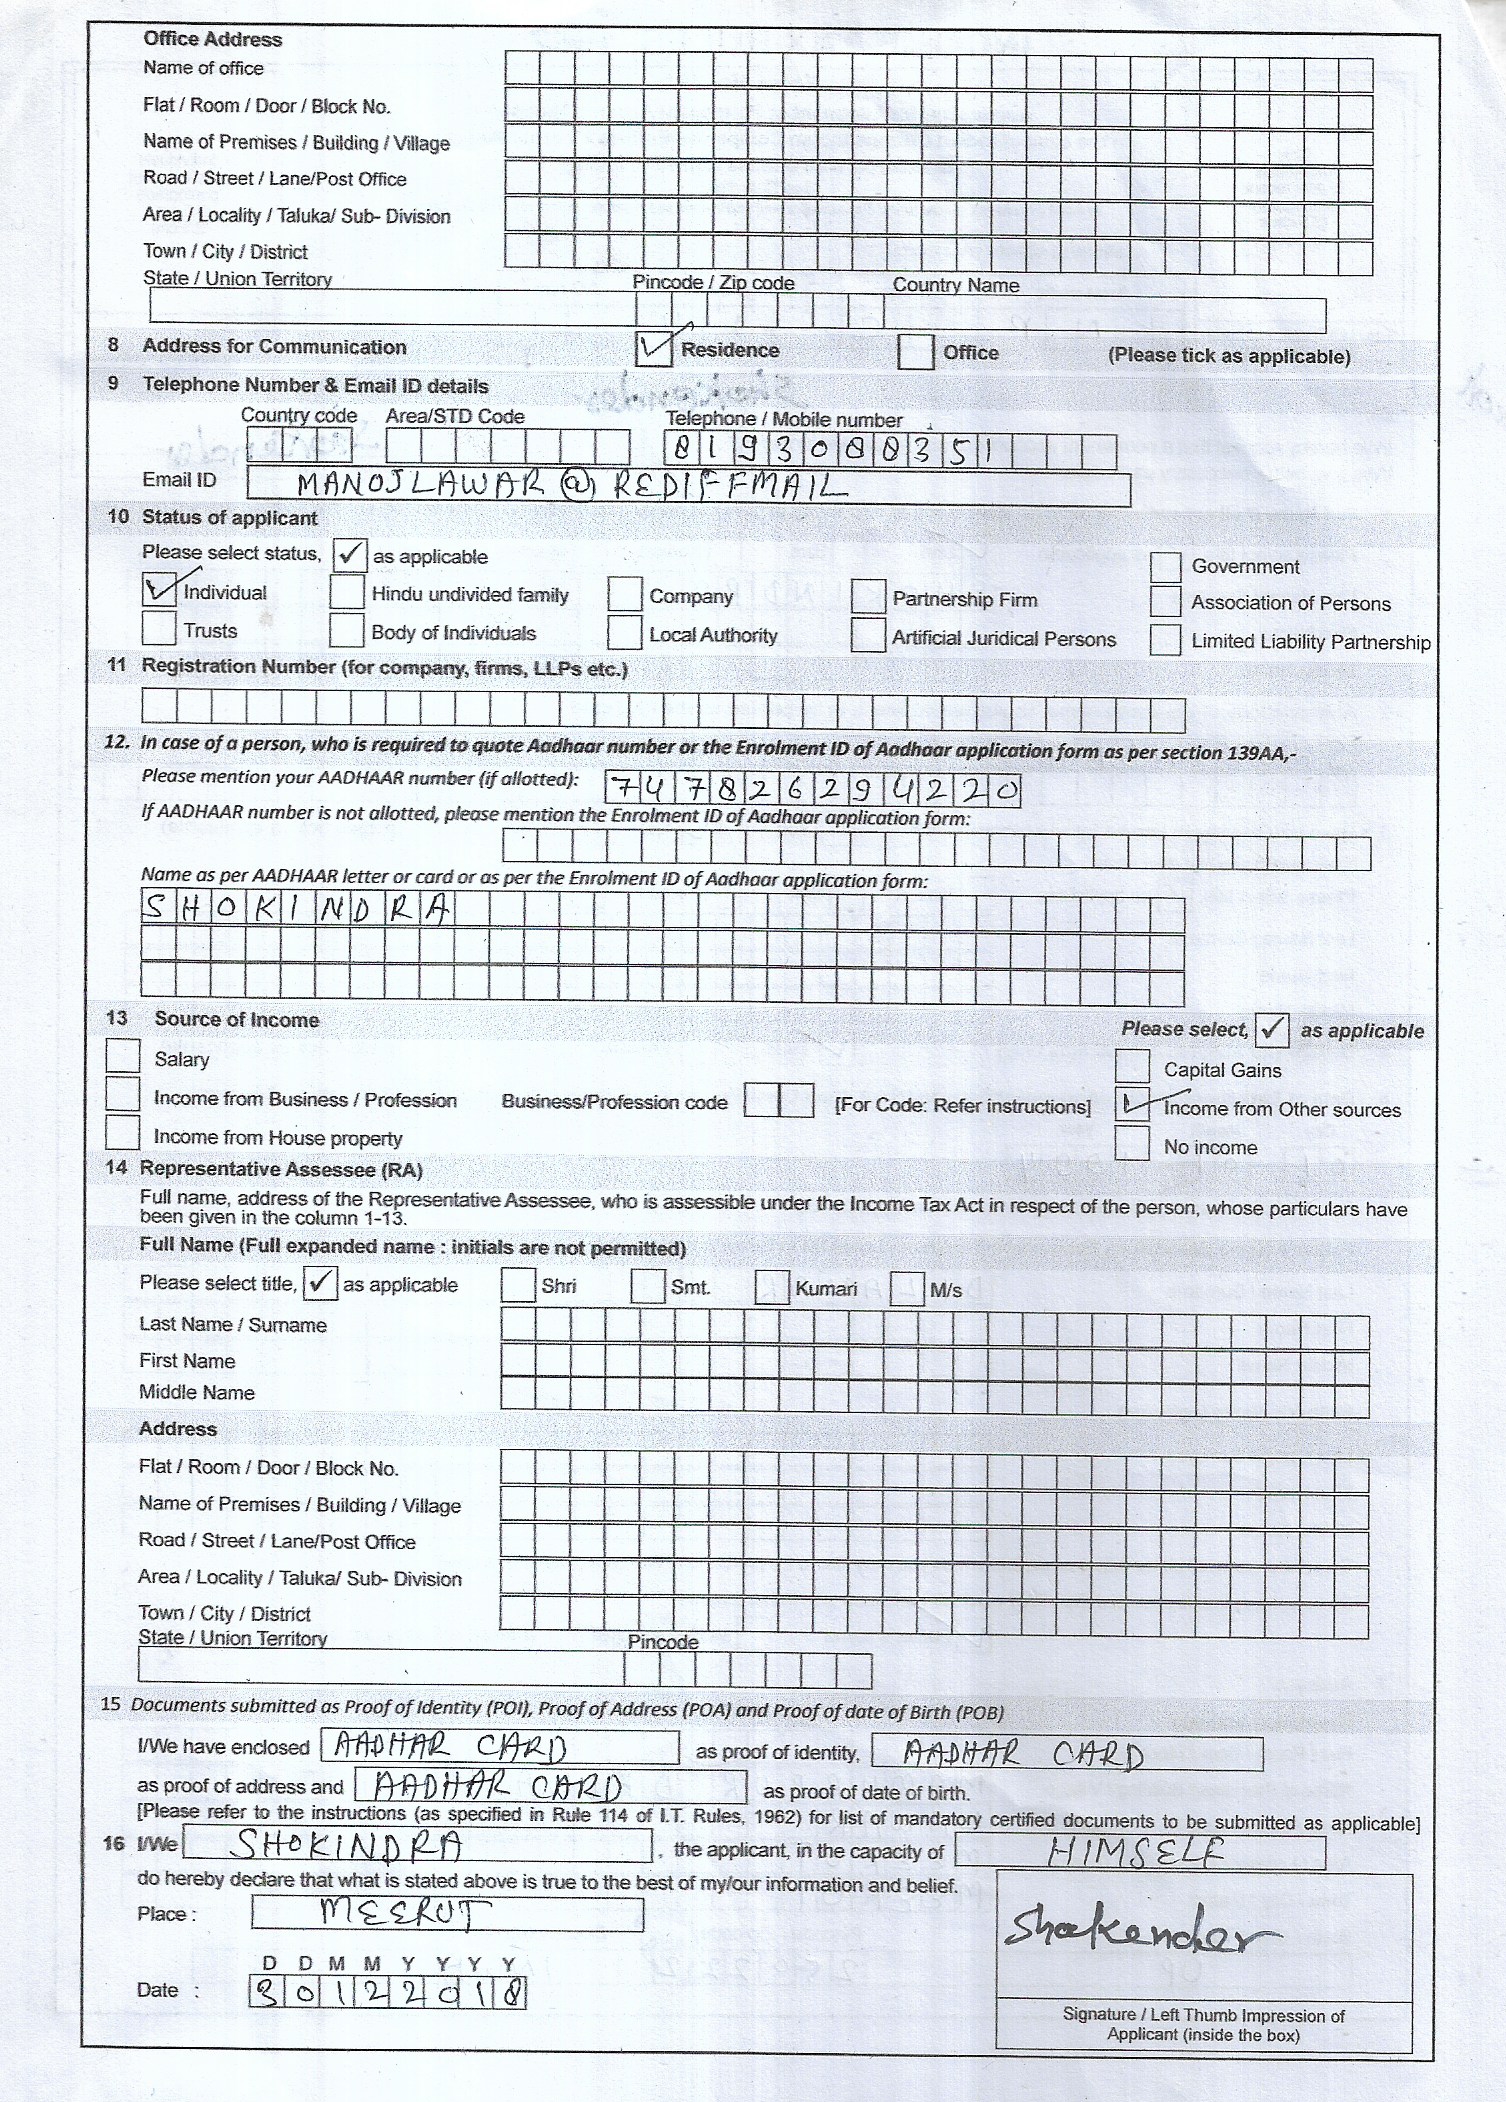 Office Address
Name of office
Flat / Room / Door / Block No.
Name of Premises / Building / Village
Road / Street / Lane/Post Office
Area / Locality / Taluka/ Sub- Division
Town / City / District
State / Union Territory Pincode / Zip code Country Name
8 Address for Communication Residence Office (Please tick as applicable)
9 Telephone Number & Email ID details
Country code Area/STD Code Telephone / Mobile number
8193088351
Email ID MANOJLAWAR@REDIFFMAIL
10 Status of applicant
Please select status, ✓ as applicable
Government
Individual Hindu undivided family Company Partnership Firm Association of Persons
Trusts Body of Individuals Local Authority Artificial Juridical Persons Limited Liability Partnership
11 Registration Number (for company, firms, LLPs etc.)
12. In case of a person, who is required to quote Aadhaar number or the Enrolment ID of Aadhaar application form as per section 139AA,-
Please mention your AADHAAR number (if allotted): 747826294220
If AADHAAR number is not allotted, please mention the Enrolment ID of Aadhaar application form:
Name as per AADHAAR letter or card or as per the Enrolment ID of Aadhaar application form:
SHOKINDRA
13 Source of Income Please select, ✓ as applicable
Salary Capital Gains
Income from Business / Profession Business/Profession code [For Code: Refer instructions] Income from Other sources
Income from House property No income
14 Representative Assessee (RA)
Full name, address of the Representative Assessee, who is assessible under the Income Tax Act in respect of the person, whose particulars have
been given in the column 1-13.
Full Name (Full expanded name : initials are not permitted)
Please select title, ✓ as applicable Shri Smt. Kumari M/s
Last Name / Surname
First Name
Middle Name
Address
Flat / Room / Door / Block No.
Name of Premises / Building / Village
Road / Street / Lane/Post Office
Area / Locality / Taluka/ Sub- Division
Town / City / District
State / Union Territory Pincode
15 Documents submitted as Proof of Identity (POI), Proof of Address (POA) and Proof of date of Birth (POB)
I/We have enclosed AADHAR CARD as proof of identity, AADHAR CARD
as proof of address and AADHAR CARD as proof of date of birth.
[Please refer to the instructions (as specified in Rule 114 of I.T. Rules, 1962) for list of mandatory certified documents to be submitted as applicable]
16 I/We SHOKINDRA , the applicant, in the capacity of HIMSELF
do hereby declare that what is stated above is true to the best of my/our information and belief.
Place : MEERUT
Shokender
D D M M Y Y Y Y
Date : 30122018
Signature / Left Thumb Impression of
Applicant (inside the box)